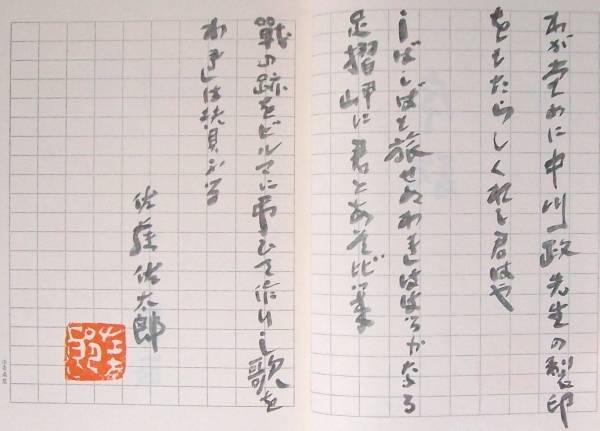 わが為めに中川一政先生の製印
をもたらしくれし君はや
しばしばも旅せぬわれははろかなる
足摺岬に君とあそびき
戰の跡をビルマに弔ひて作りし歌を
われは
佐藤佐太郎